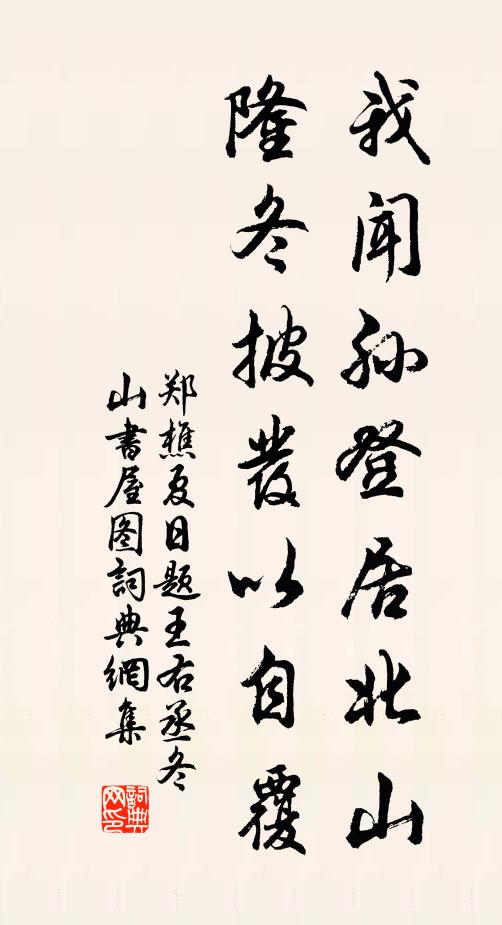 我闻孙登居北山
隆冬披发以自覆
郑樵夏日题王右丞冬
山書屋图詞典網集
詞典网印